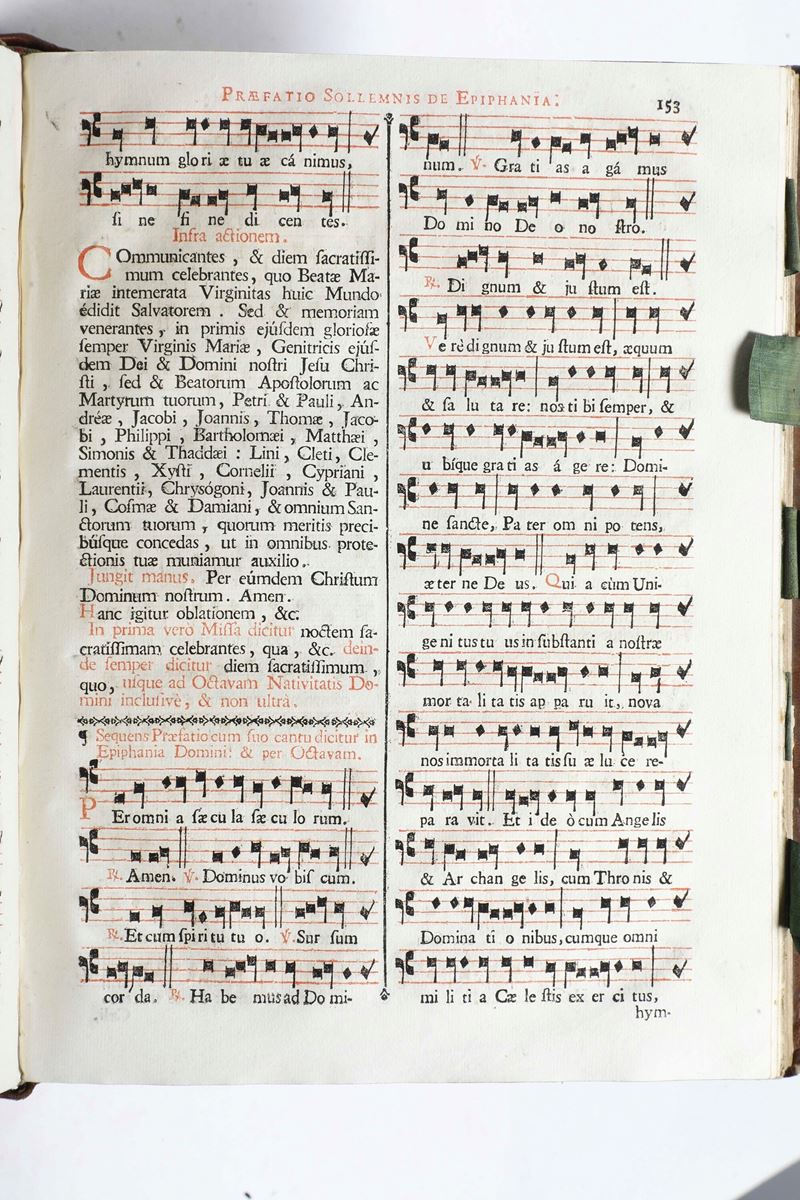 PRÆFATIO SOLLEMNIS DE EPIPHANIA: 153
hymnum glo ri æ tu æ cá nimus,
ſi ne fi ne di cen tes.
Infra actionem.
COmmunicantes , & diem ſacratiſſi-
mum celebrantes, quo Beatæ Ma-
riæ intemerata Virginitas huic Mundo
édidit Salvatorem . Sed & memoriam
venerantes , in primis ejúſdem glorioſæ
ſemper Virginis Mariæ , Genitricis ejúſ-
dem Dei & Domini noſtri Jeſu Chri-
ſti , ſed & Beatorum Apoſtolorum ac
Martyrum tuorum, Petri & Pauli, An-
dréæ , Jacobi , Joannis , Thomæ , Jaco-
bi , Philippi , Bartholomæi , Matthæi ,
Simonis & Thaddæi : Lini , Cleti, Cle-
mentis , Xyſti , Cornelii , Cypriani ,
Laurentii, Chrysógoni, Joannis & Pau-
li, Coſmæ & Damiani, & omnium San-
ctorum tuorum , quorum meritis preci-
búſque concedas , ut in omnibus prote-
ctionis tuæ muniamur auxilio.
Jungit manus. Per eúmdem Chriſtum
Dominum noſtrum. Amen.
Hanc igitur oblationem , &c.
In prima verò Miſſa dicitur noctem ſa-
cratiſſimam celebrantes, qua , &c. dein-
de ſemper dicitur diem ſacratiſſimum ,
quo, uſque ad Octavam Nativitatis Do-
mini incluſivè, & non ultrà.
¶ Sequens Præfatio cum ſuo cantu dicitur in
Epiphania Domini: & per Octavam.
PEr omni a ſæ cu la ſæ cu lo rum.
℟. Amen. ℣. Dominus vo biſ cum.
℟. Et cum ſpi ri tu tu o. ℣. Sur ſum
cor da. ℟. Ha be mus ad Do mi-
num. ℣. Gra ti as a gá mus
Do mi no De o no ſtro.
℟. Di gnum & ju ſtum eſt.
Ve rè di gnum & ju ſtum eſt, æquum
& ſa lu ta re: nos ti bi ſemper, &
u bíque gra ti as á ge re: Domi-
ne ſancte, Pa ter om ni po tens,
æ ter ne De us. Qui a cùm Uni-
ge ni tus tu us in ſubſtanti a noſtræ
mor ta li ta tis ap pa ru it, nova
nos immorta li ta tis ſu æ lu ce re-
pa ra vit. Et i de ò cum Angelis
& Ar chan ge lis, cum Thro nis &
Domina ti o nibus, cumque omni
mi li ti a Cæ le ſtis ex er ci tus,
hym-